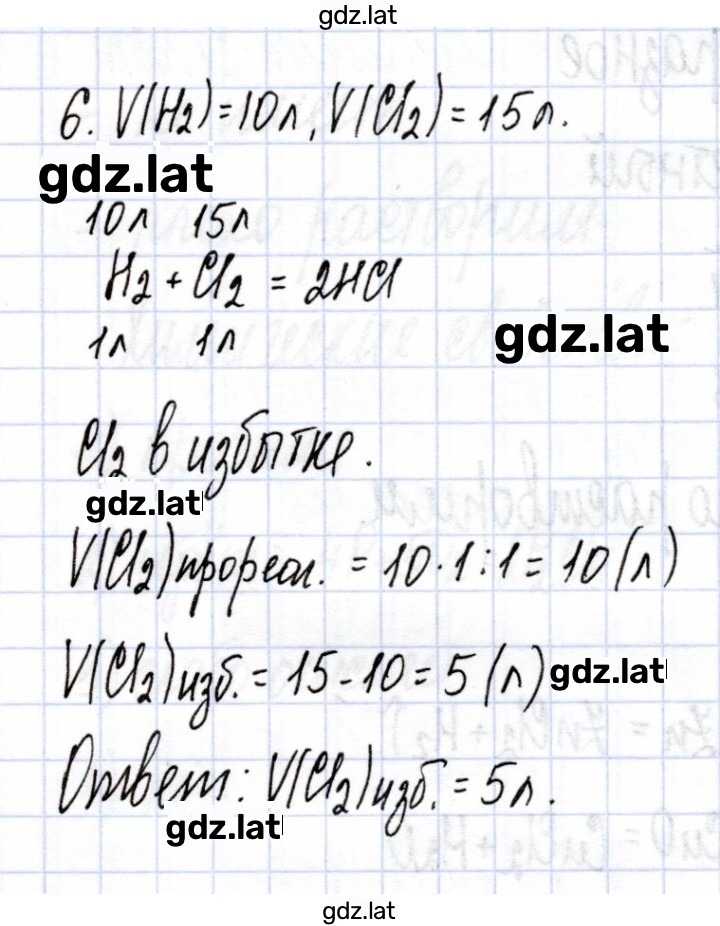 gdz.lat
6. V(H₂) = 10л, V(Cl₂) = 15л.
gdz.lat
10л 15л
H₂ + Cl₂ = 2HCl
gdz.lat
1л 1л
Cl₂ в избытке.
gdz.lat
V(Cl₂)прореаг. = 10·1:1 = 10(л)
V(Cl₂)изб. = 15-10 = 5(л)
gdz.lat
Ответ: V(Cl₂)изб. = 5л.
gdz.lat
gdz.lat